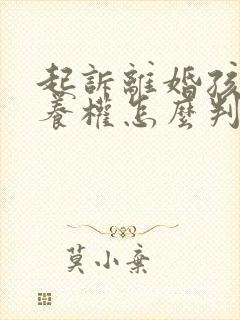 起訴離婚孩
養權怎麼判
莫小棄